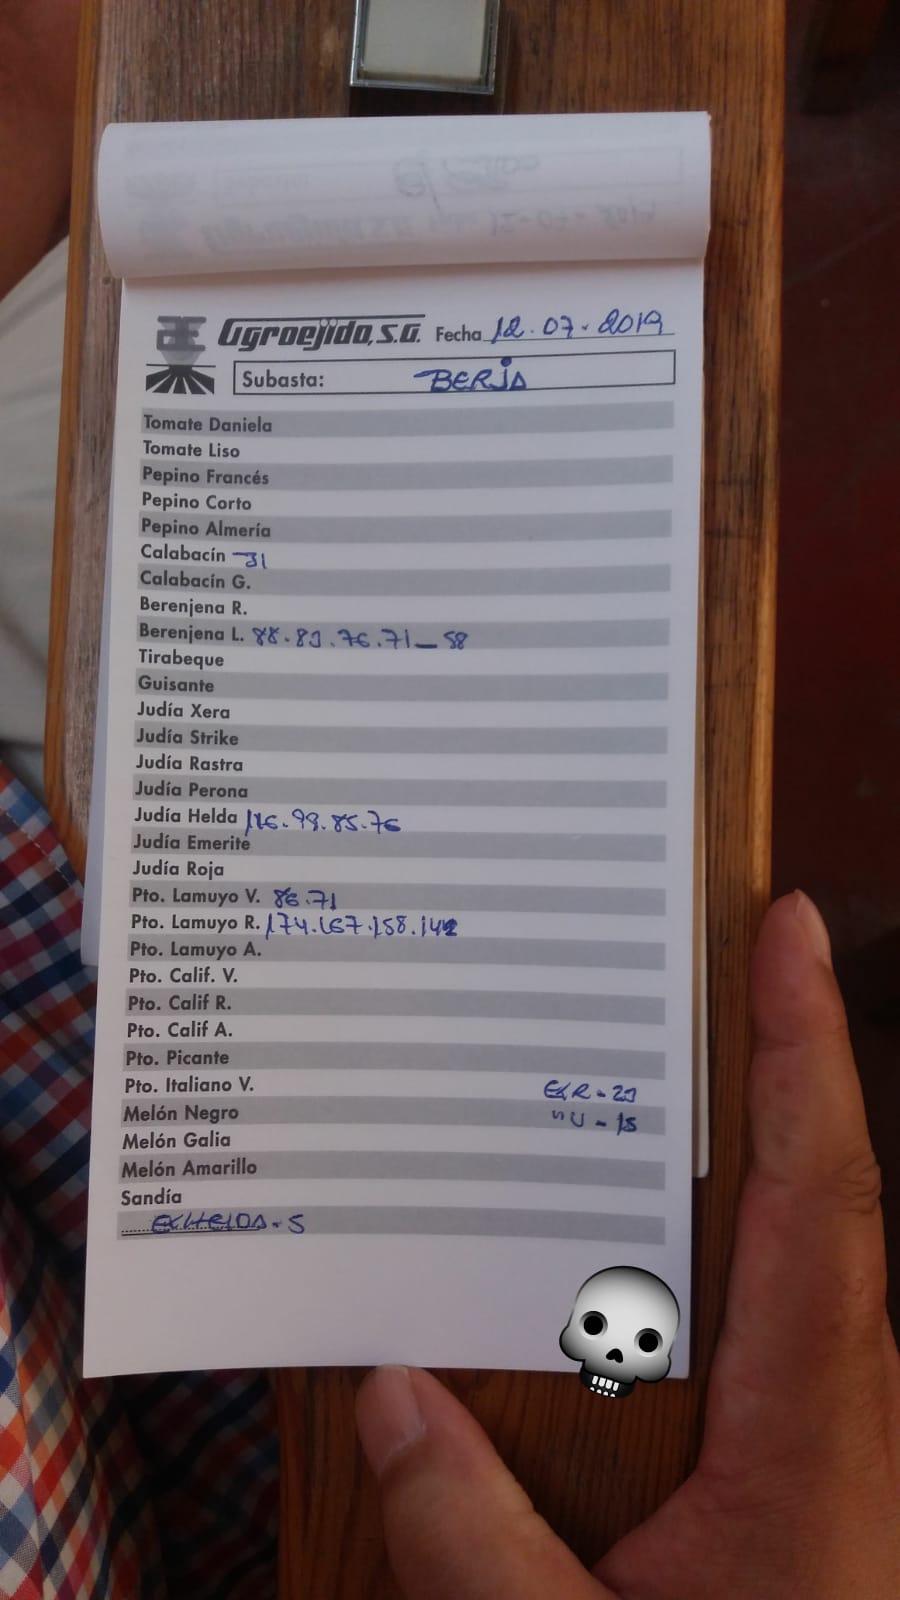 Agroejido, S.A. Fecha 12.07.2019
Subasta: BERJA
Tomate Daniela
Tomate Liso
Pepino Francés
Pepino Corto
Pepino Almería
Calabacín - 31
Calabacín G.
Berenjena R.
Berenjena L. 88.83.76.71_58
Tirabeque
Guisante
Judía Xera
Judía Strike
Judía Rastra
Judía Perona
Judía Helda 116.99.85.76
Judía Emerite
Judía Roja
Pto. Lamuyo V. 86.71
Pto. Lamuyo R. 174.167.158.142
Pto. Lamuyo A.
Pto. Calif. V.
Pto. Calif R.
Pto. Calif A.
Pto. Picante
Pto. Italiano V. EXR - 23
Melón Negro "V - 15
Melón Galia
Melón Amarillo
Sandía
EXHELDA - 5